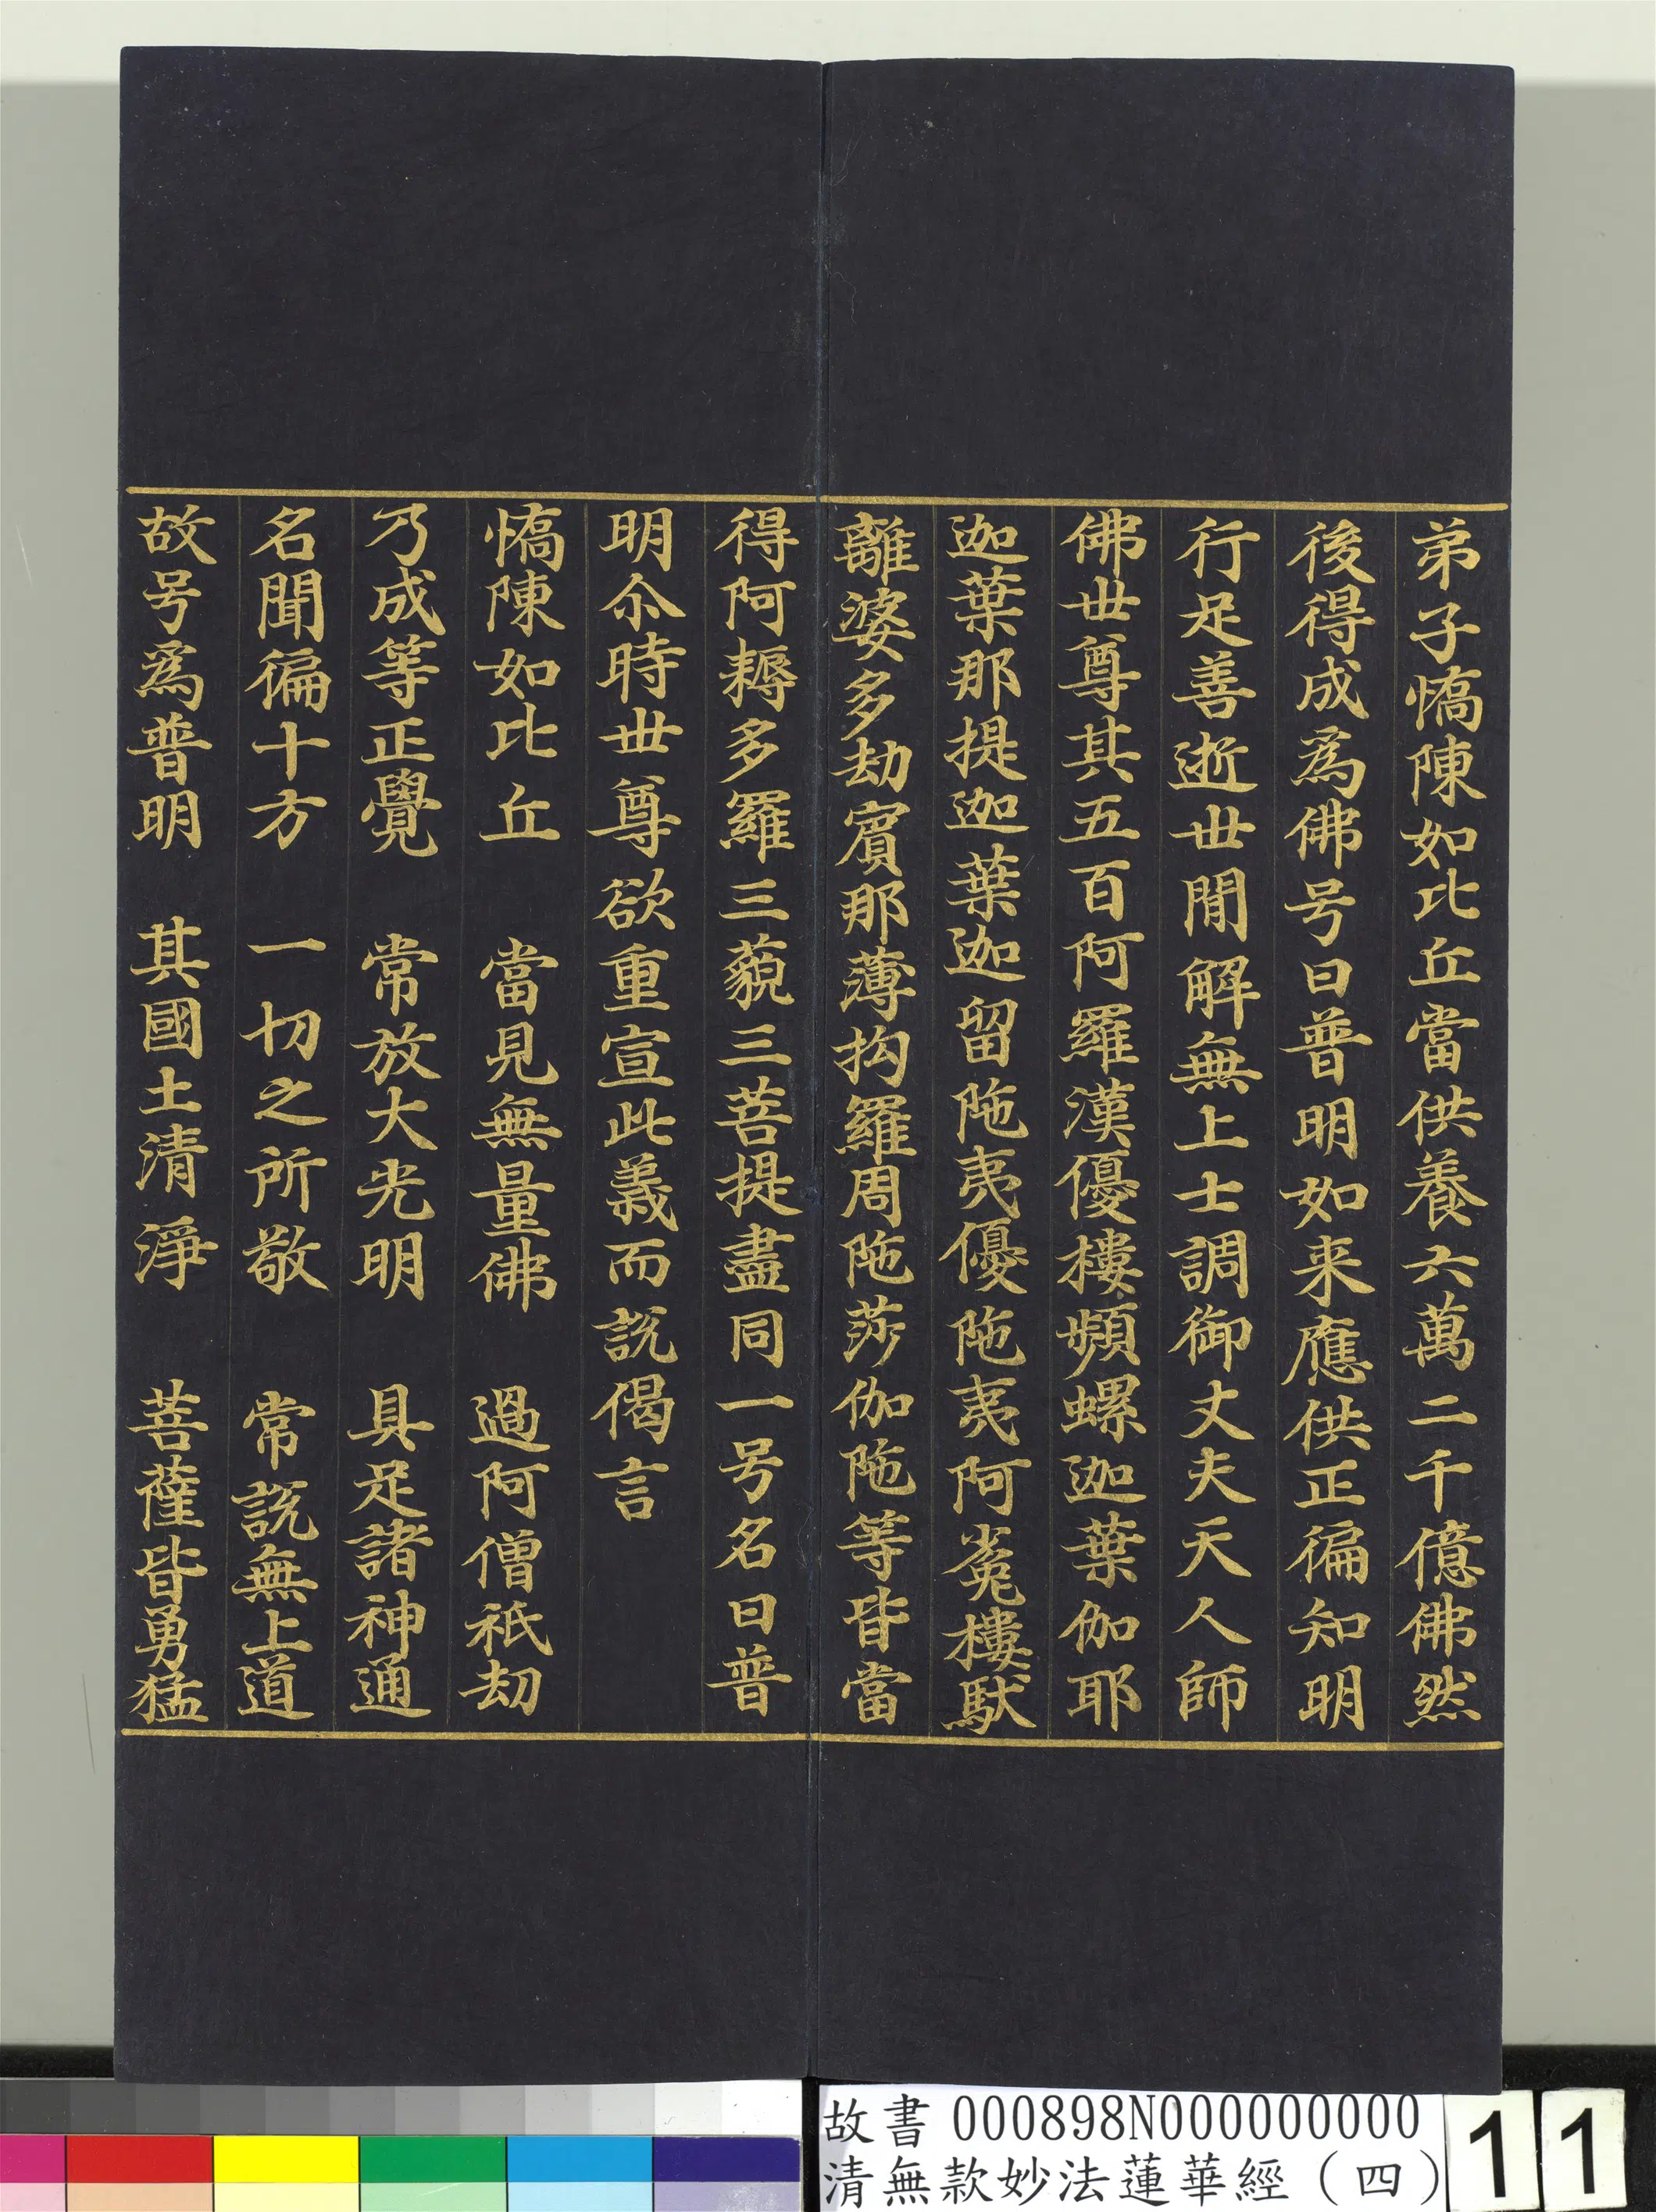 弟子憍陳如比丘當供養六萬二千億佛然
後得成爲佛号曰普明如来應供正徧知明
行足善逝世間解無上士調御丈夫天人師
佛世尊其五百阿羅漢優樓頻螺迦葉伽耶
迦葉那提迦葉迦留陁夷優陁夷阿㝹樓馱
離婆多劫賓那薄拘羅周陁莎伽陁等皆當
得阿耨多羅三藐三菩提盡同一号名曰普
明尒時世尊欲重宣此義而說偈言
憍陳如比丘　當見無量佛　過阿僧祇劫
乃成等正覺　常放大光明　具足諸神通
名聞徧十方　一切之所敬　常說無上道
故号爲普明　其國土清淨　菩薩皆勇猛
故書 000898N000000000
清無款妙法蓮華經（四）
11